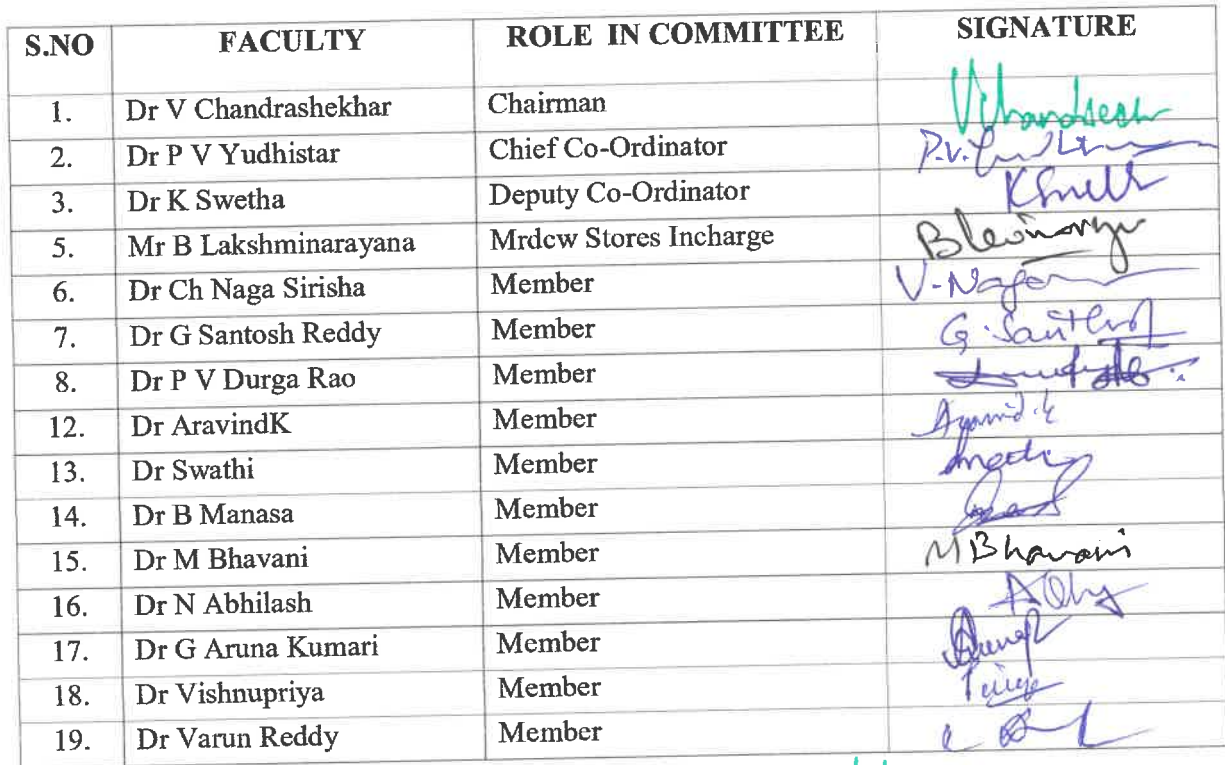 S.NO FACULTY ROLE IN COMMITTEE SIGNATURE
1. Dr V Chandrashekhar Chairman
2. Dr P V Yudhistar Chief Co-Ordinator P.V.
3. Dr K Swetha Deputy Co-Ordinator
5. Mr B Lakshminarayana Mrdcw Stores Incharge
6. Dr Ch Naga Sirisha Member
7. Dr G Santosh Reddy Member
8. Dr P V Durga Rao Member
12. Dr AravindK Member
13. Dr Swathi Member
14. Dr B Manasa Member
15. Dr M Bhavani Member M Bhavani
16. Dr N Abhilash Member
17. Dr G Aruna Kumari Member
18. Dr Vishnupriya Member
19. Dr Varun Reddy Member